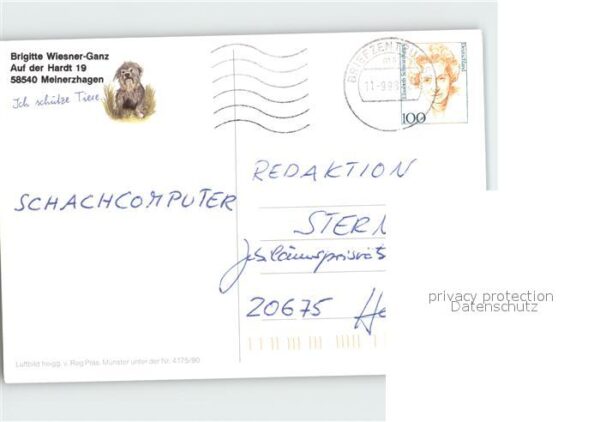 Brigitte Wiesner-Ganz
Auf der Hardt 19
58540 Meinerzhagen
Ich schütze Tiere
BRIEFZENTRUM
Deutschland
100
SCHACHCOMPUTER
REDAKTION
STERN
20675
privacy protection
Datenschutz
Luftbild freigg. v. Reg.Präs. Münster unter der Nr. 4175/90